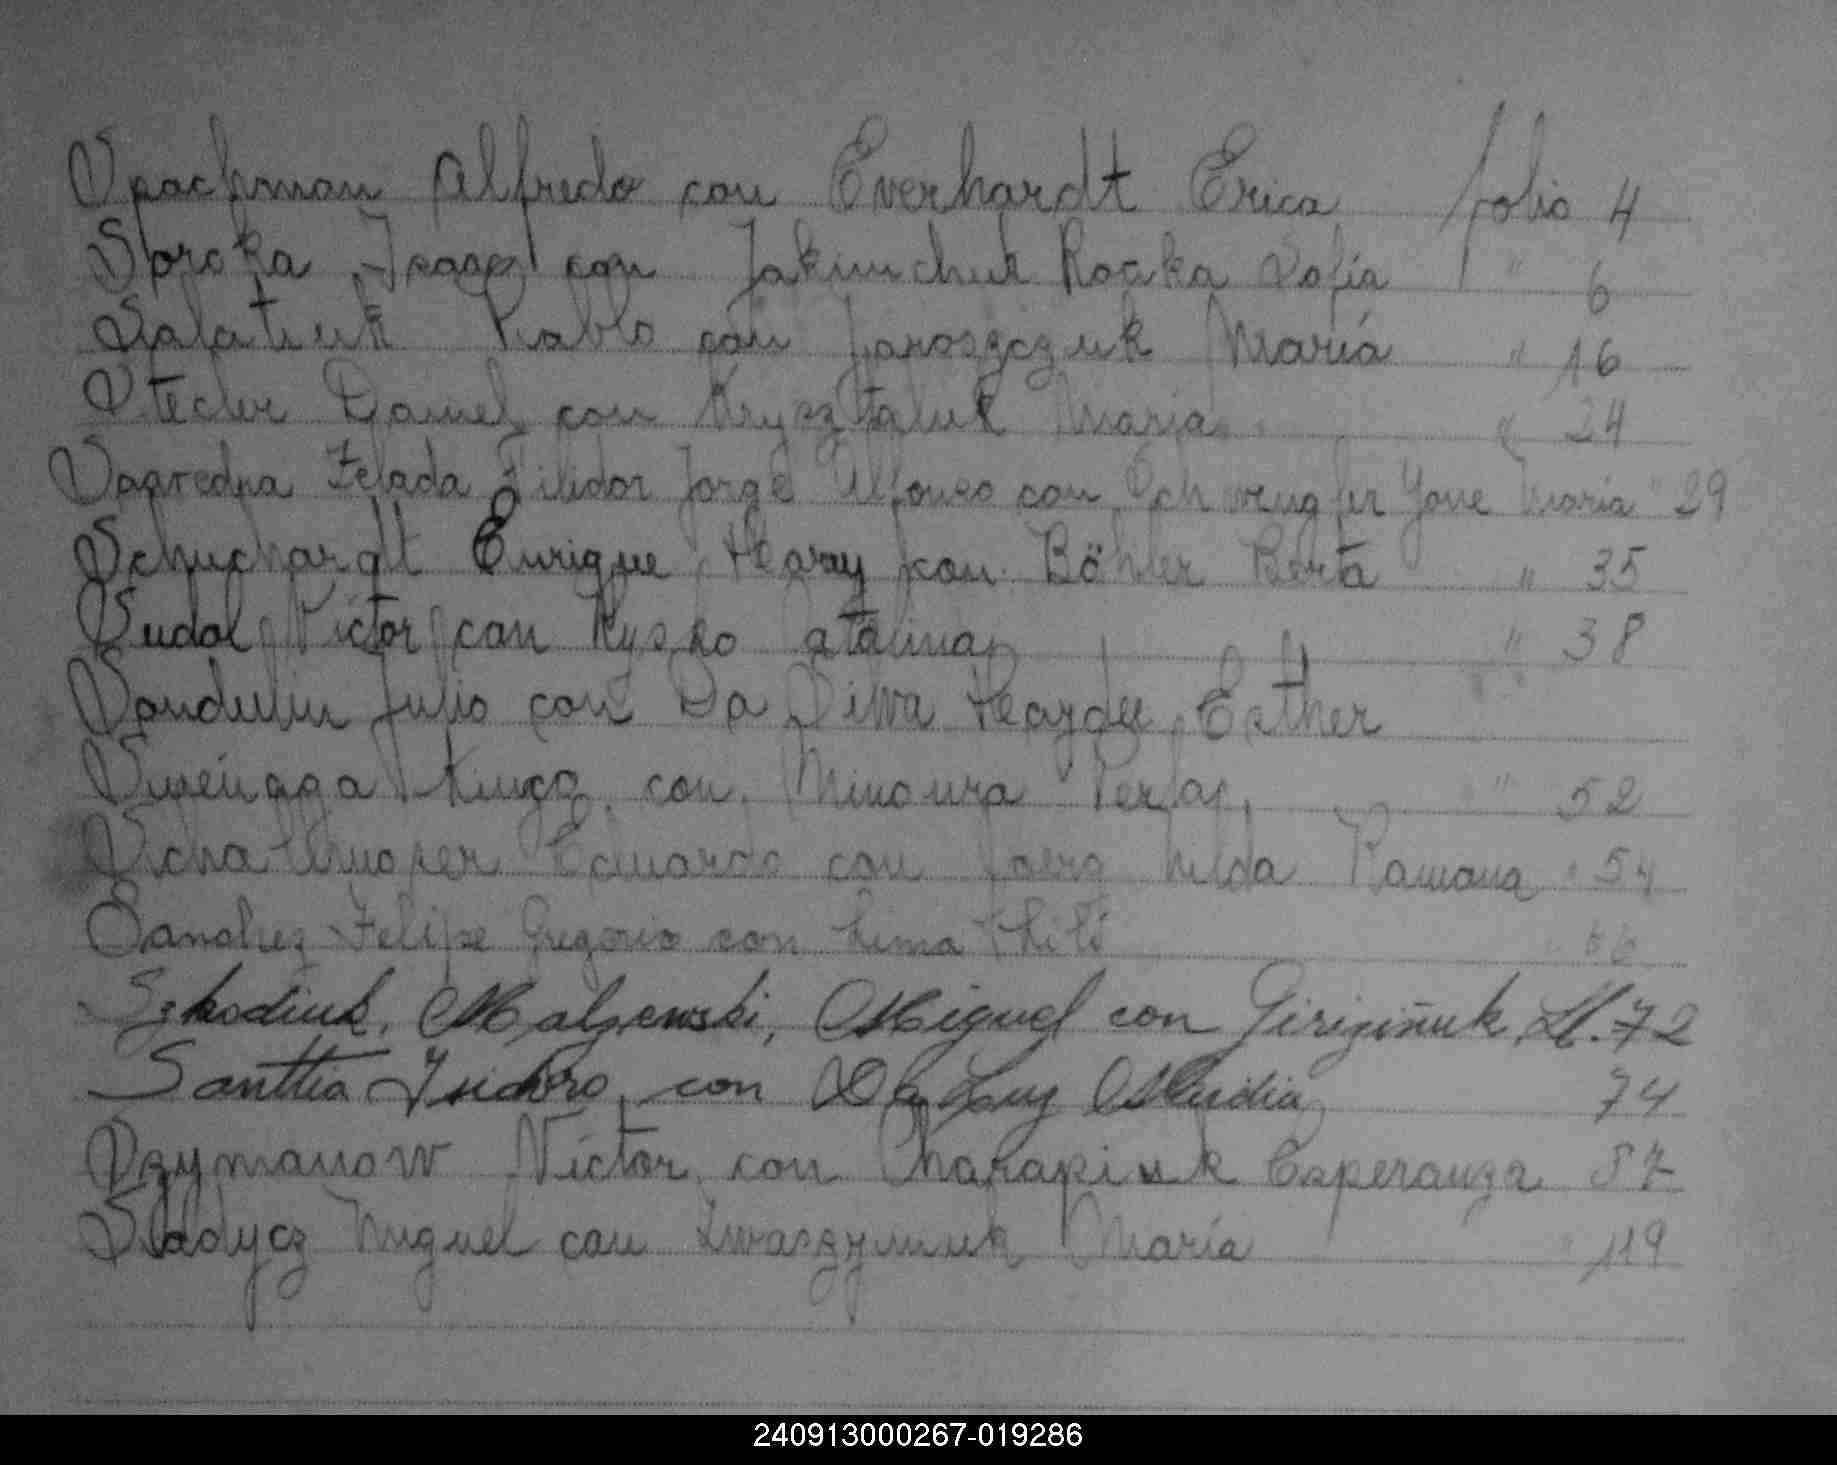 Spachman Alfredo con Everhardt Erica folio 4
Soroka Isaac con Jakimchuk Rocka Sofía " 6
Salatiuk Pablo con Jaroszczuk María " 16
Stecler Daniel con Krysztaluk María " 24
Saavedra Zelada Filidor Jorge Alfonso con Schwengber Yone María " 29
Schuchardt Enrique Harry con Böhler Berta " 35
Sudol Víctor con Rysko Catalina " 38
Sandulin Julio con Da Silva Haydee Esther
con Minoura Perla " 52
Eduardo con hilda Ramona " 54
Sanchez Felipe Gregorio con Lima
Szkodiuk, Malzewski, Miguel con Giriziñuk, M. 72
Santtia Isidoro con Da Luz Nudia 74
Szymanow Víctor con Charapiuk Esperanza 87
Sladycz Miguel con Iwaszymiuk María 119
240913000267-019286